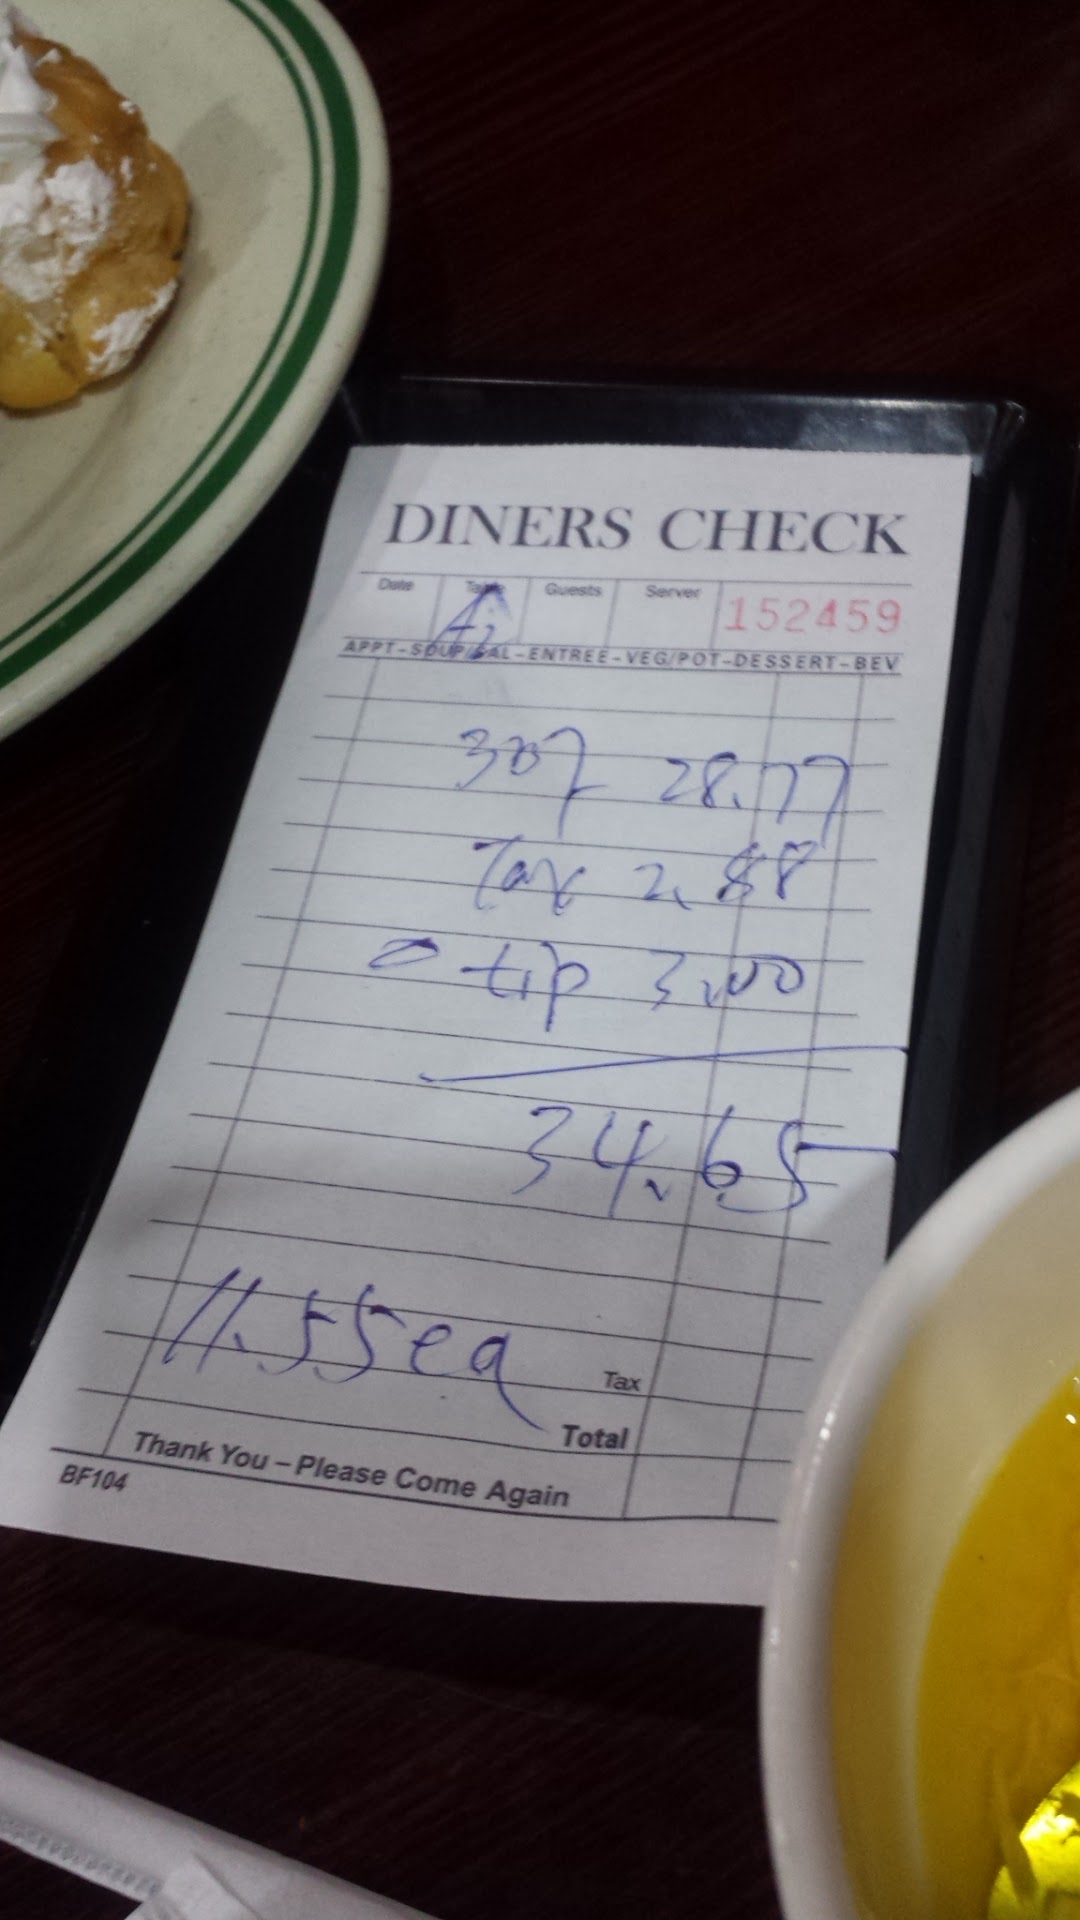 DINERS CHECK
Date Table Guests Server 152459
APPT-SOUP/SAL-ENTREE-VEG/POT-DESSERT-BEV
28.77
Tax 2.88
tip 3.00
34.65
11.55 ea
Tax
Total
Thank You – Please Come Again
BF104